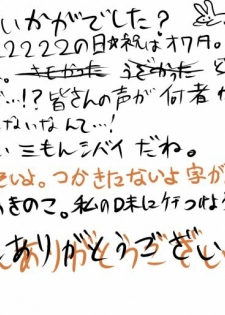 いかがでした?
22222の日祝はオワ月。
。きもかった うざかった
…!? 皆さんの声が何者か
ないなんて…!
い三もんシバイだね。
そいよ。つかきたないよ字が
きのこ。私の味にケチつけよう
ありがとうござい
ありがとうござい